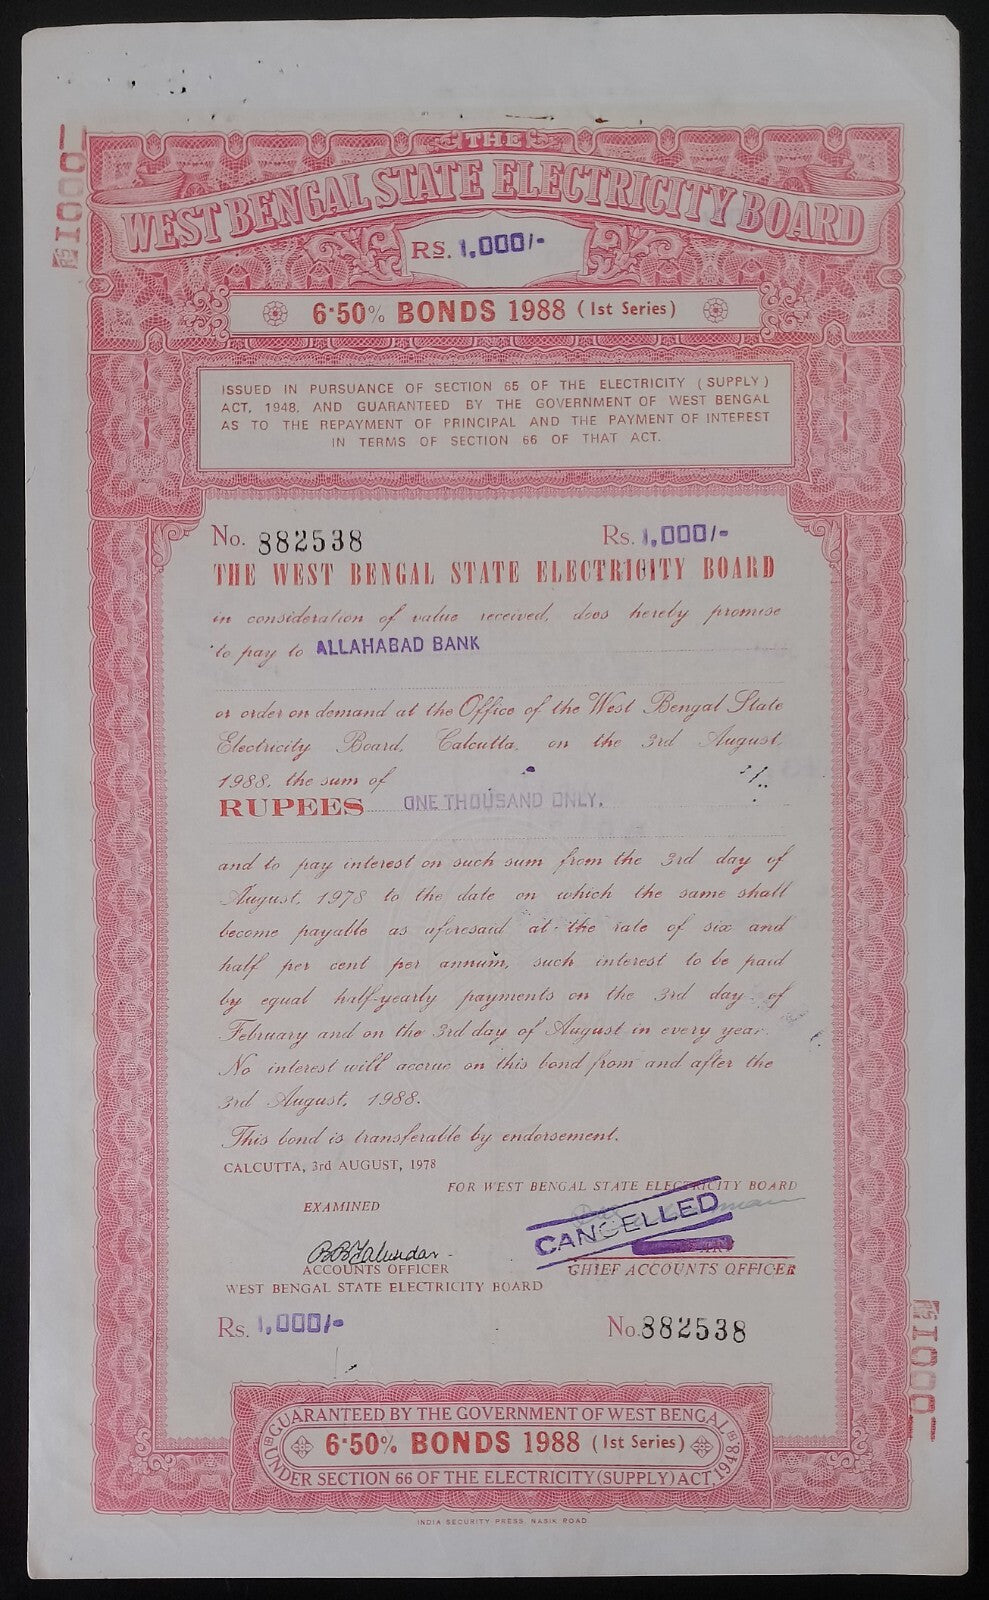 ₨1000/-
THE
WEST BENGAL STATE ELECTRICITY BOARD
RS. 1,000/-
6·50% BONDS 1988 (Ist Series)
ISSUED IN PURSUANCE OF SECTION 65 OF THE ELECTRICITY (SUPPLY)
ACT, 1948, AND GUARANTEED BY THE GOVERNMENT OF WEST BENGAL
AS TO THE REPAYMENT OF PRINCIPAL AND THE PAYMENT OF INTEREST
IN TERMS OF SECTION 66 OF THAT ACT.
No. 882538 Rs. 1,000/-
THE WEST BENGAL STATE ELECTRICITY BOARD
in consideration of value received, does hereby promise
to pay to ALLAHABAD BANK
or order on demand at the Office of the West Bengal State
Electricity Board, Calcutta, on the 3rd August,
1988, the sum of
RUPEES ONE THOUSAND ONLY.
and to pay interest on such sum from the 3rd day of
August, 1978 to the date on which the same shall
become payable as aforesaid at the rate of six and
half per cent per annum, such interest to be paid
by equal half-yearly payments on the 3rd day of
February and on the 3rd day of August in every year.
No interest will accrue on this bond from and after the
3rd August, 1988.
This bond is transferable by endorsement.
CALCUTTA, 3rd AUGUST, 1978
FOR WEST BENGAL STATE ELECTRICITY BOARD
EXAMINED
CANCELLED
ACCOUNTS OFFICER
CHIEF ACCOUNTS OFFICER
WEST BENGAL STATE ELECTRICITY BOARD
Rs. 1,000/- No. 882538
₨1000/-
GUARANTEED BY THE GOVERNMENT OF WEST BENGAL
6·50% BONDS 1988 (Ist Series)
UNDER SECTION 66 OF THE ELECTRICITY (SUPPLY) ACT, 1948.
INDIA SECURITY PRESS, NASIK ROAD